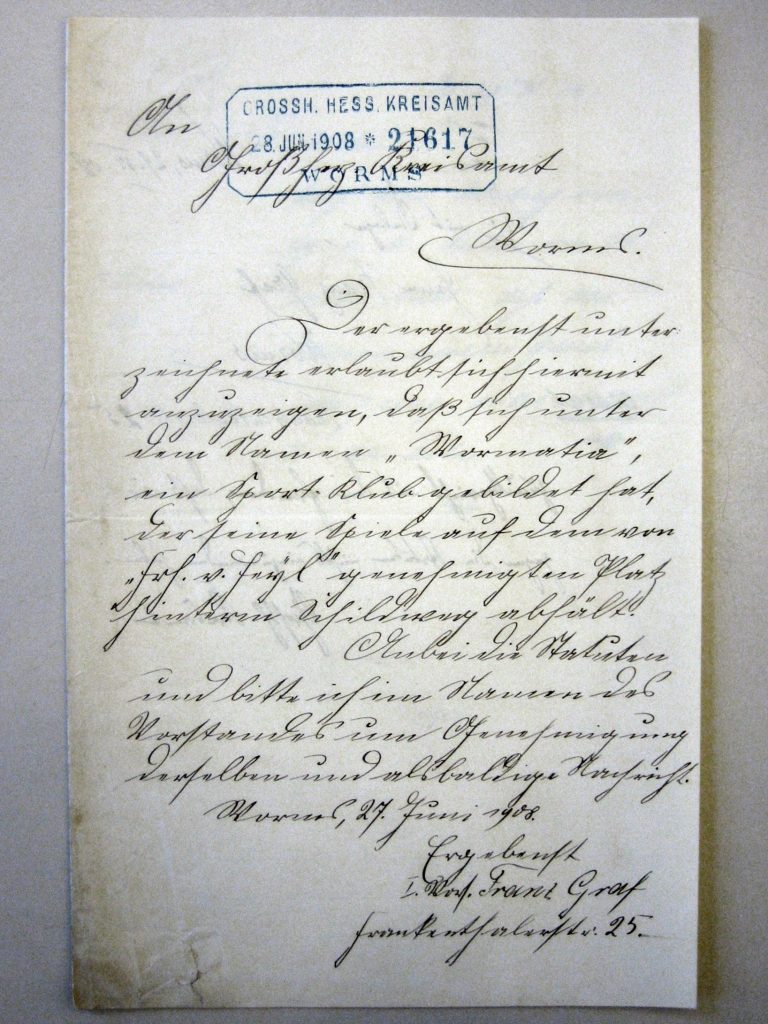 GROSSH. HESS. KREISAMT
28. JUN. 1908 * 21617
WORMS
An
Großhzg. Kreisamt
Worms.
Der ergebenst unter
zeichnete erlaubt sich hiermit
anzuzeigen, daß sich unter
dem Namen „Wormatia",
ein Sport-Klub gebildet hat,
der seine Spiele auf dem von
„Frh. v. Heyl" genehmigten Platz
hinterm Schildweg abhält.
Anbei die Statuten
und bitte ich im Namen des
Vorstandes um Genehmigung
derselben und alsbaldige Nachricht.
Worms, 27. Juni 1908.
Ergebenst
I. Vors. Franz Graf
Frankenthalerstr. 25.